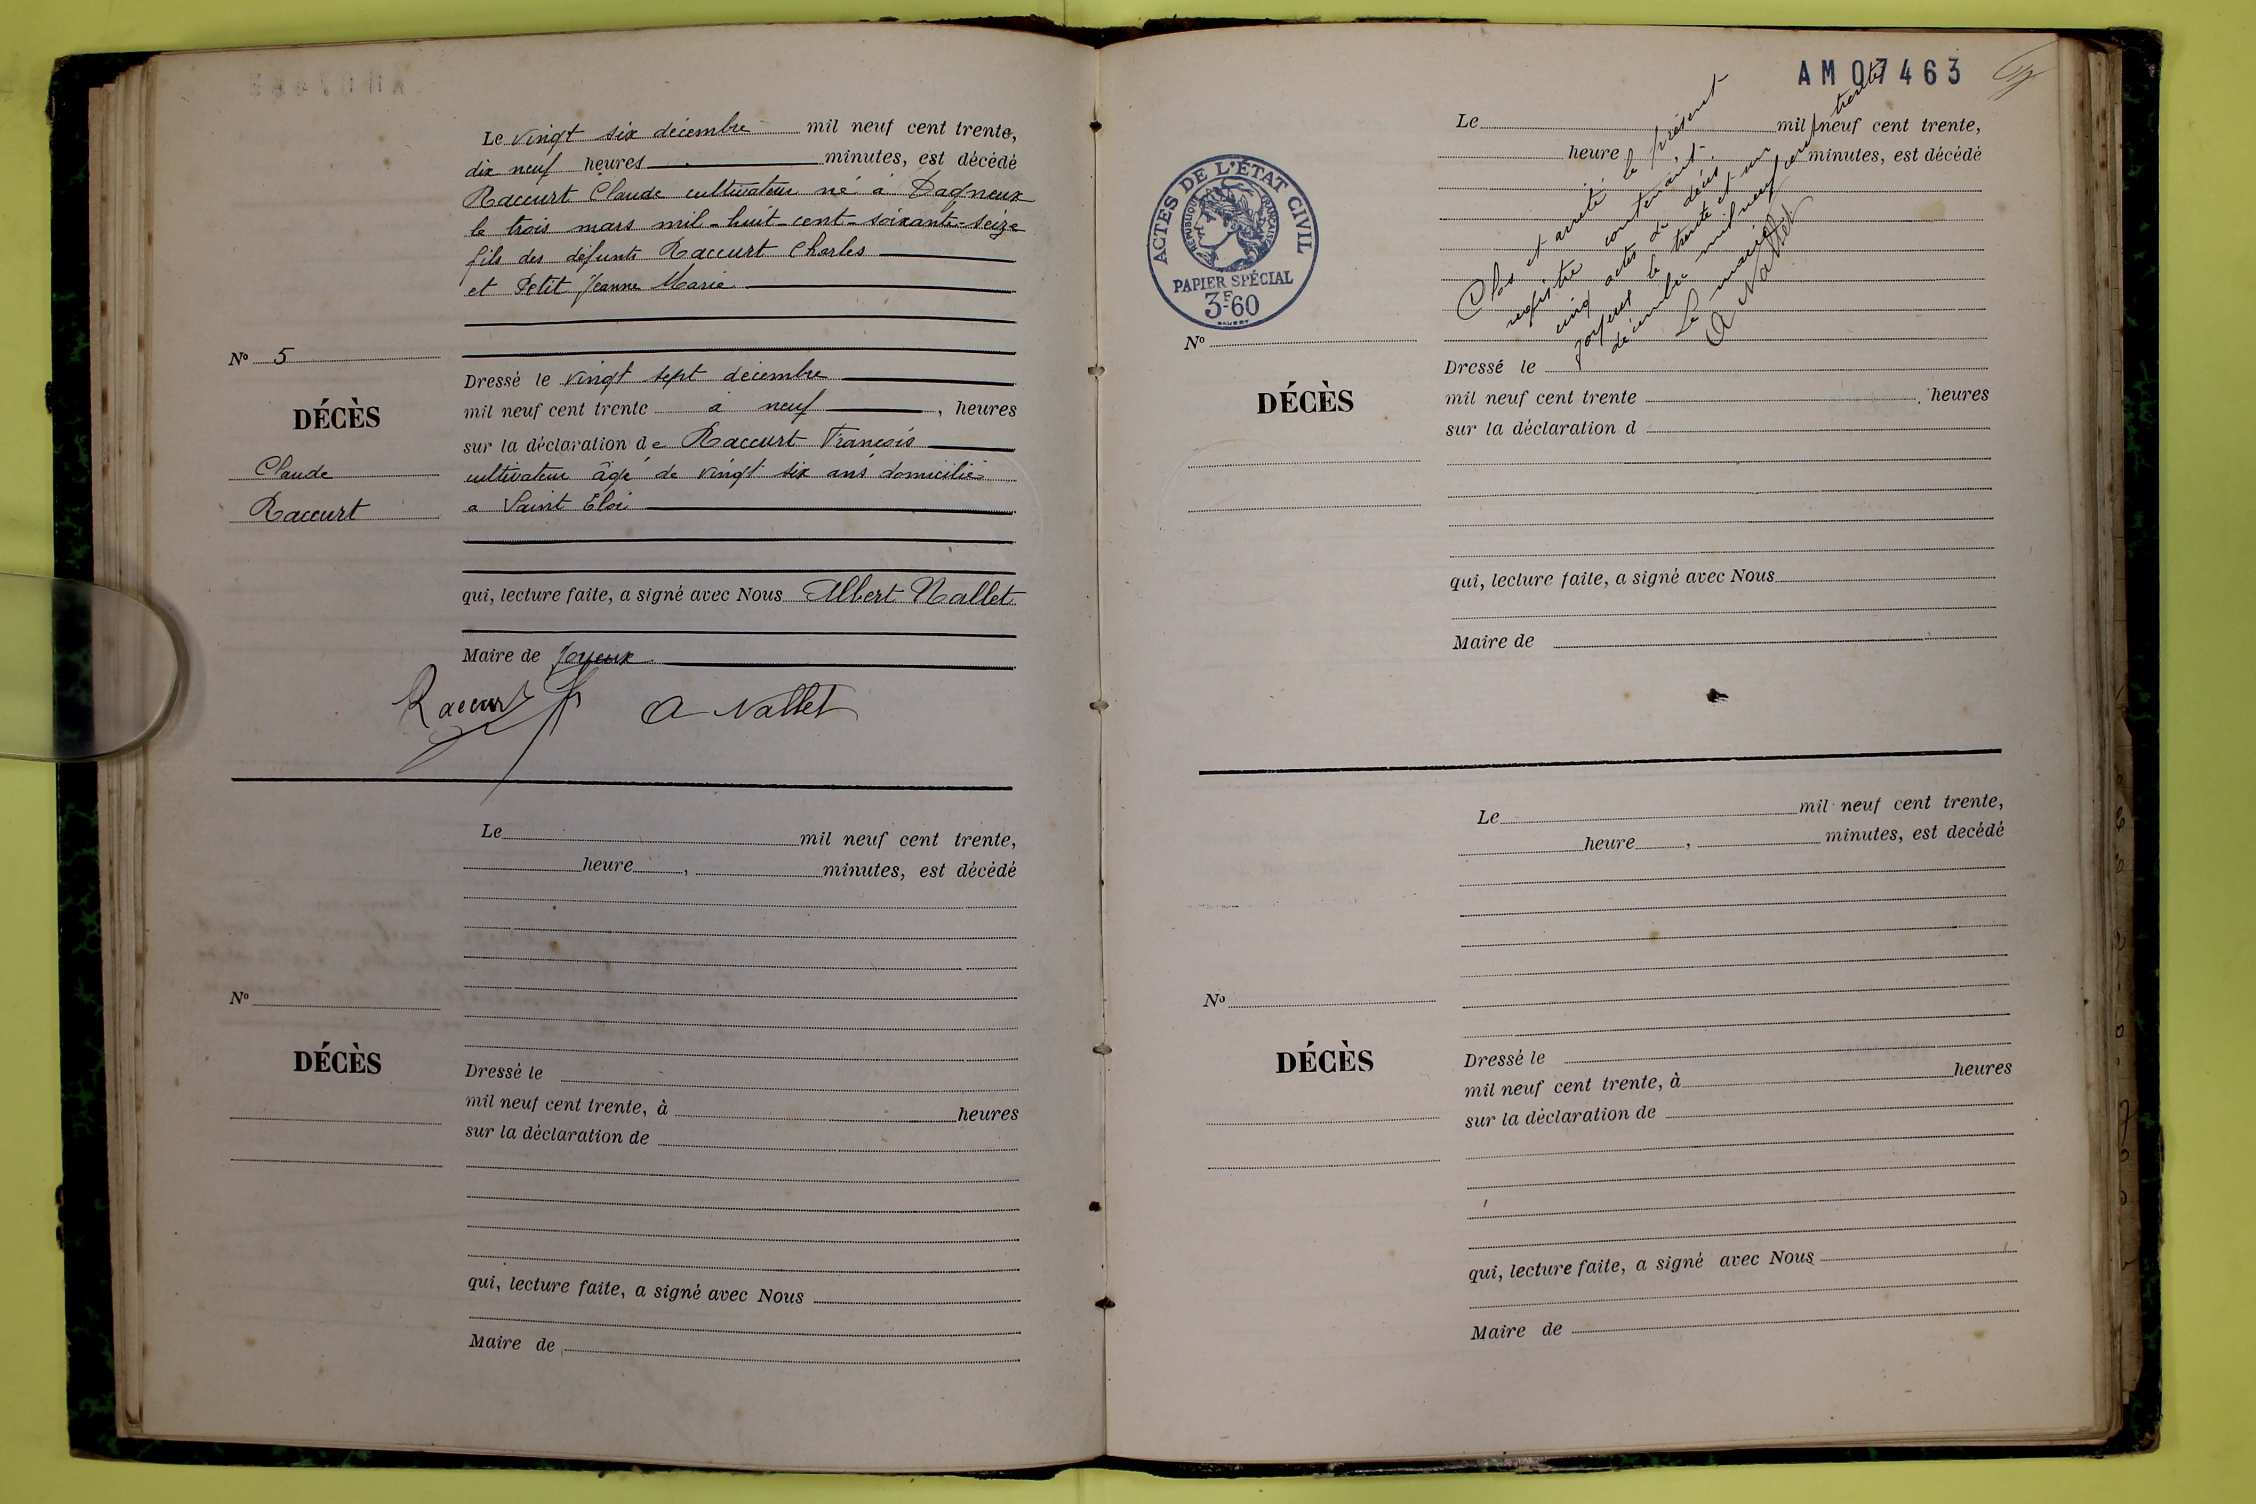 Le vingt six décembre mil neuf cent trente,
dix neuf heures minutes, est décédé
Raccurt Claude cultivateur né à Dagneux
le trois mars mil-huit-cent-soixante-seize
fils des défunts Raccurt Charles
et Petit Jeanne Marie
No 5
DÉCÈS
Claude
Raccurt
Dressé le vingt sept décembre
mil neuf cent trente à neuf, heures
sur la déclaration de Raccurt François
cultivateur âgé de vingt six ans domicilié
a Saint Eloi
qui, lecture faite, a signé avec Nous Albert Nallet
Maire de Joyeux
Raccurt A Nallet
Le mil neuf cent trente,
heure , minutes, est décédé
No
DÉCÈS
Dressé le
mil neuf cent trente, à heures
sur la déclaration de
qui, lecture faite, a signé avec Nous
Maire de
AM07463
ACTES DE L'ÉTAT CIVIL
RÉPUBLIQUE FRANÇAISE
PAPIER SPÉCIAL
3F60
Le mil neuf cent trente,
heure , minutes, est décédé
Clos et arrêté le présent
registre contenant
cinq actes de décès
Joyeux le trente et un
décembre mil neuf cent trente
Le maire
A Nallet
No
DÉCÈS
Dressé le
mil neuf cent trente , heures
sur la déclaration d
qui, lecture faite, a signé avec Nous
Maire de
Le mil neuf cent trente,
heure , minutes, est decédé
No
DÉCÈS
Dressé le
mil neuf cent trente, à heures
sur la déclaration de
qui, lecture faite, a signé avec Nous
Maire de